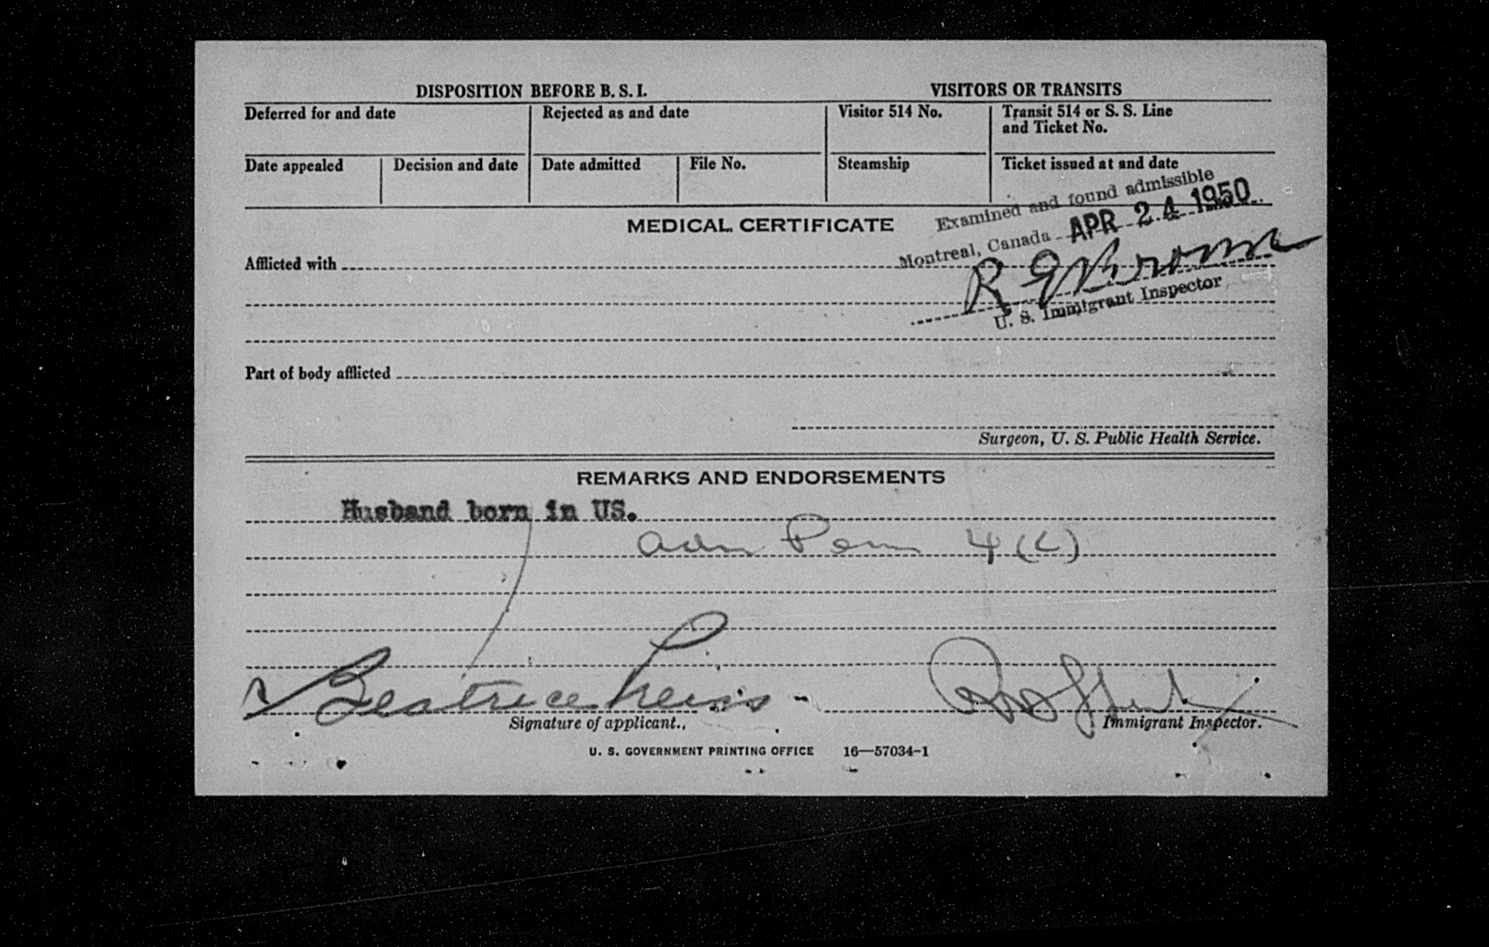 DISPOSITION BEFORE B. S. I.
VISITORS OR TRANSITS
Deferred for and date
Rejected as and date
Visitor 514 No.
Transit 514 or S. S. Line
and Ticket No.
Date appealed
Decision and date
Date admitted
File No.
Steamship
Ticket issued at and date
MEDICAL CERTIFICATE
Examined and found admissible
Montreal, Canada APR 24 1950
R
U. S. Immigrant Inspector
Afflicted with
Part of body afflicted
Surgeon, U. S. Public Health Service.
REMARKS AND ENDORSEMENTS
Husband born in US.
adm Perm 4(c)
Beatrice
Signature of applicant.
Immigrant Inspector.
U. S. GOVERNMENT PRINTING OFFICE 16—57034-1